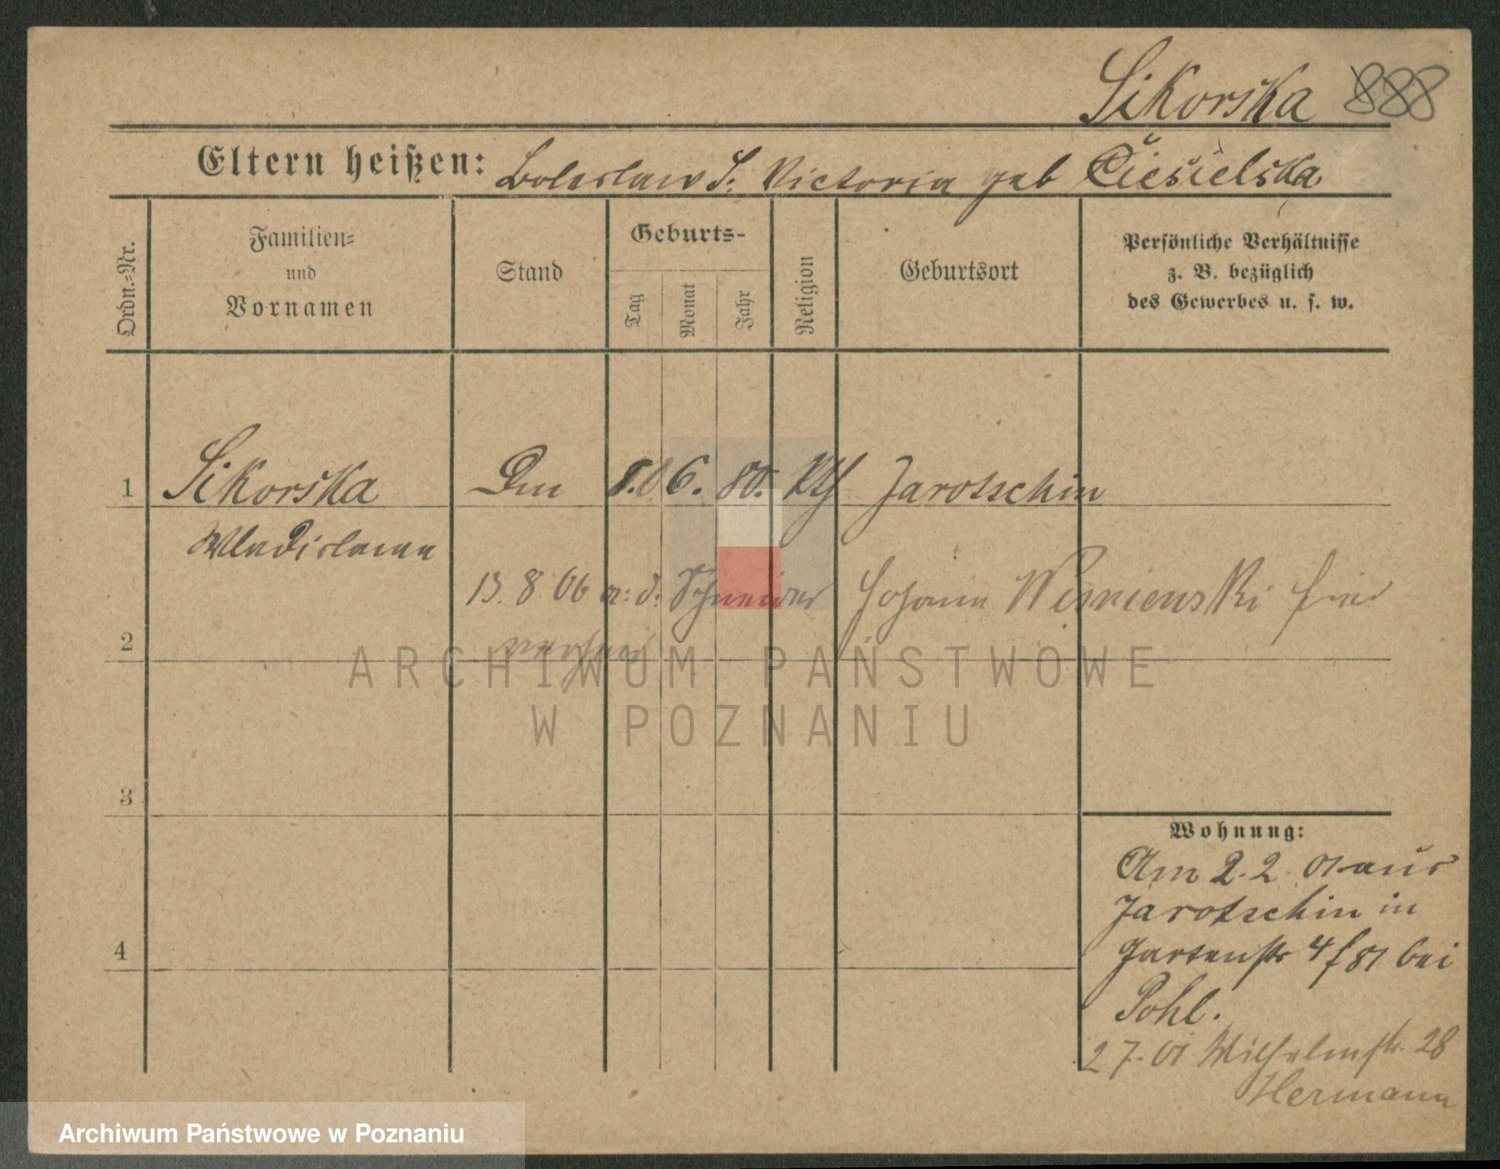 Sikorska 888
Eltern heißen: Boleslaw S. Victoria geb Ciesielska
Ordn.-Nr.
Familien-
und
Vornamen
Stand
Geburts-
Tag
Monat
Jahr
Religion
Geburtsort
Persönliche Verhältnisse
z. B. bezüglich
des Gewerbes u. s. w.
1 Sikorska 8. 6. 80. Kth Jarotschin
Wladislawa
8 06 Schneider Johann hier
2
ARCHIWUM PAŃSTWOWE
W POZNANIU
3
Wohnung:
Am 2.2.01 aus
Jarotschin in
4
Gartenstr 4 bei
Pohl.
2 7. 01 Wilhelmstr. 28
Hermann
Archiwum Państwowe w Poznaniu